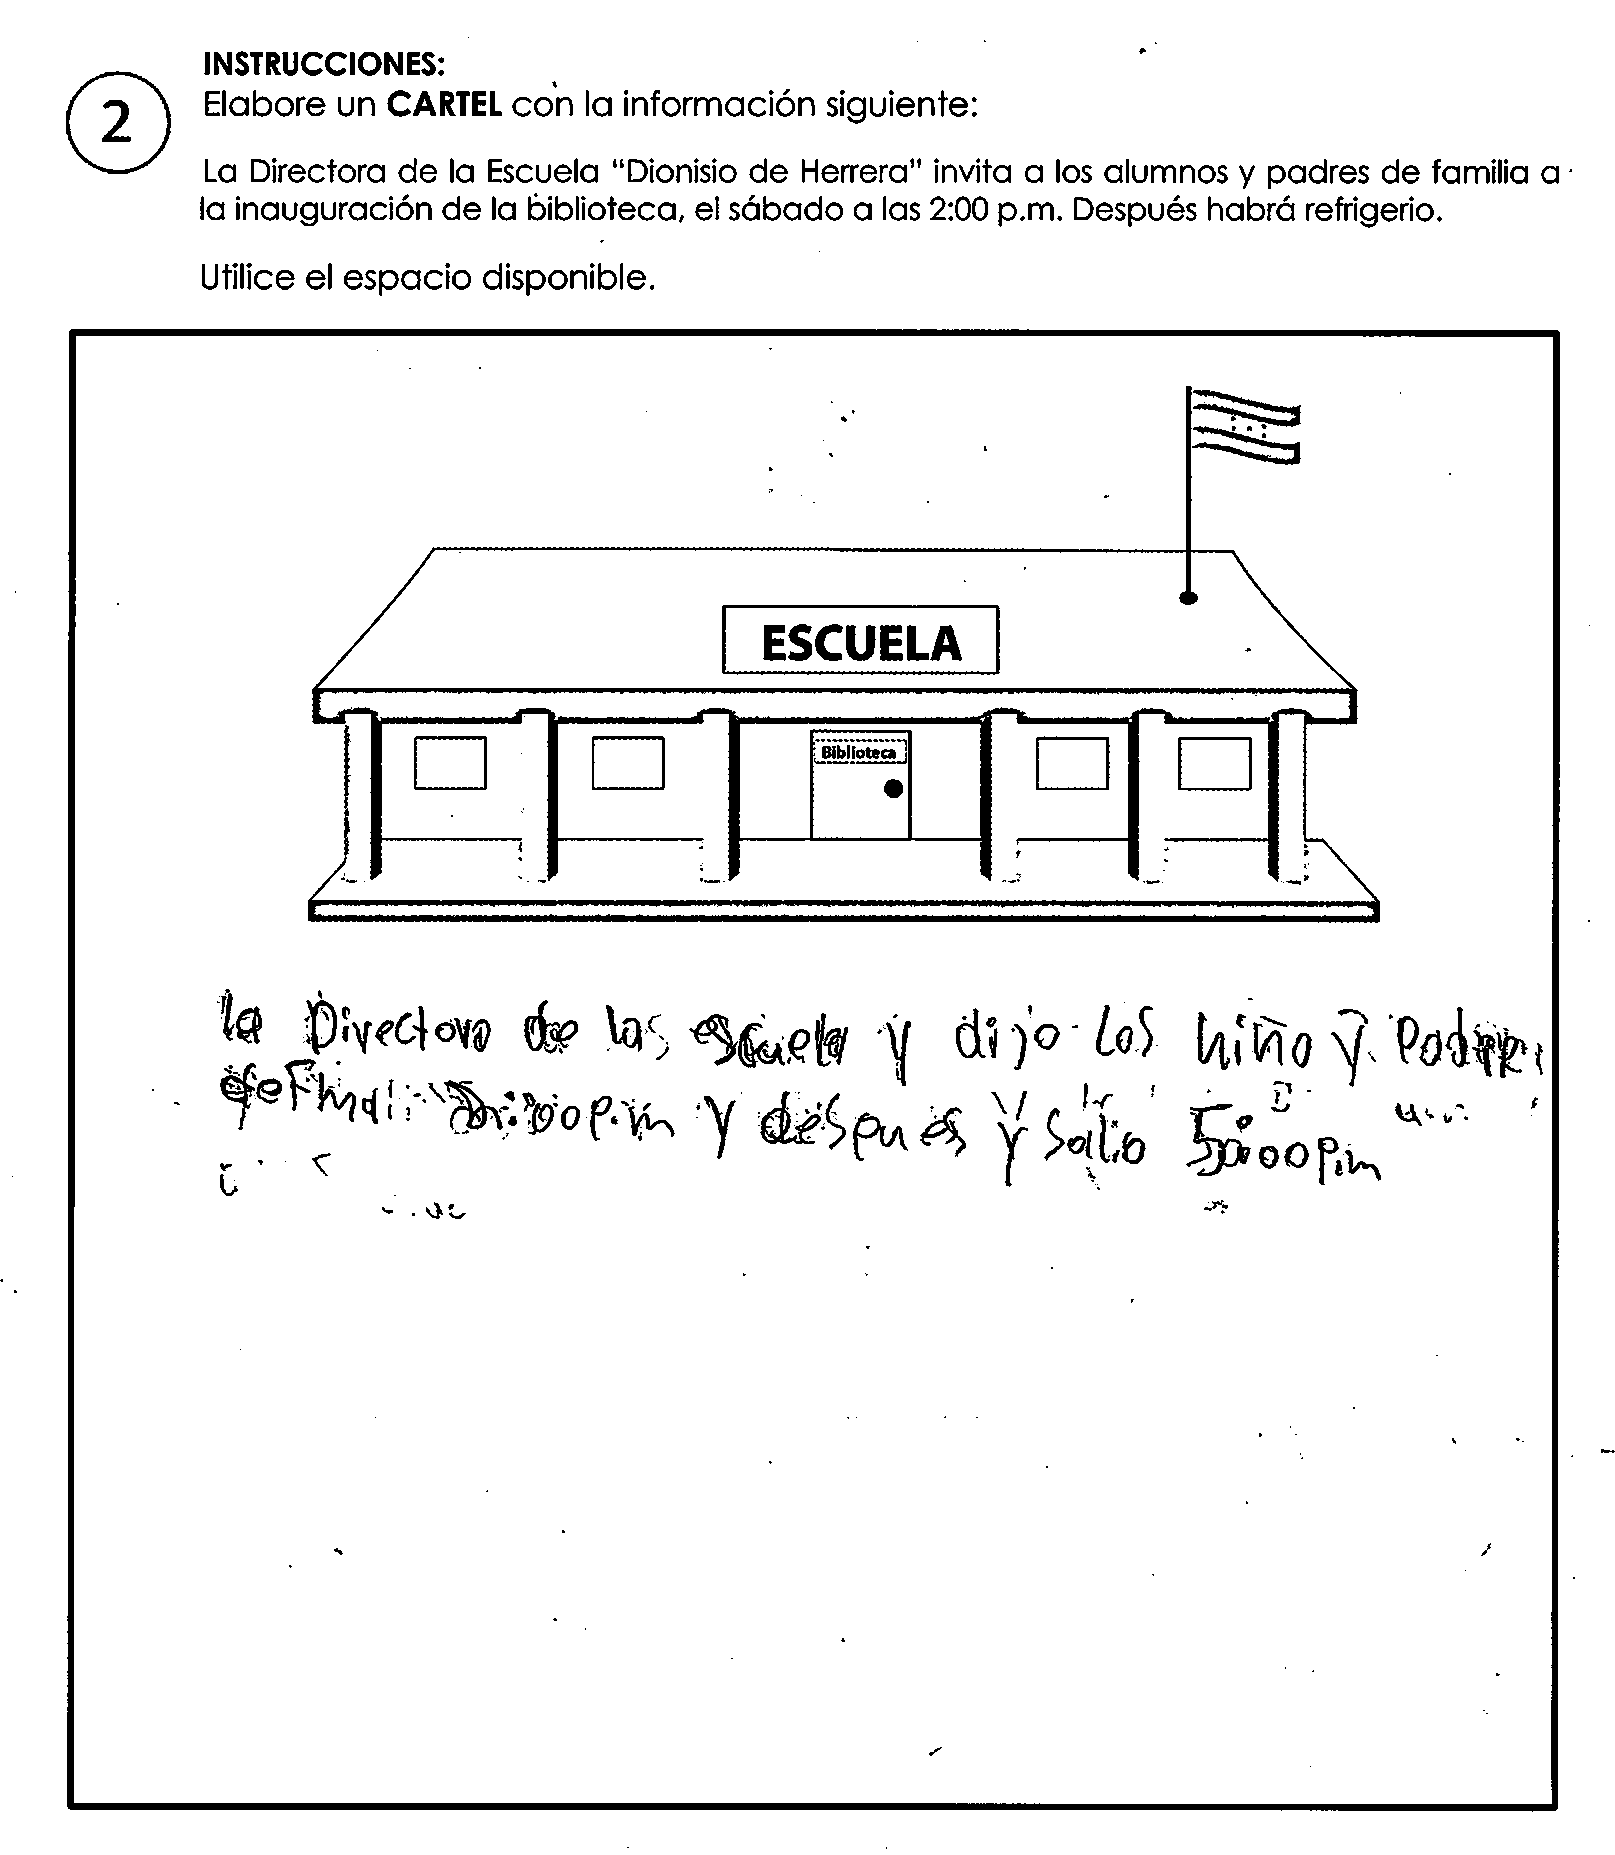 INSTRUCCIONES:
2
Elabore un CARTEL con la información siguiente:
La Directora de la Escuela “Dionisio de Herrera” invita a los alumnos y padres de familia a
la inauguración de la biblioteca, el sábado a las 2:00 p.m. Después habrá refrigerio.
Utilice el espacio disponible.
ESCUELA
Biblioteca
la Directora de las escuela y dijo los niño y Padre
de :00 P.m y después y salio 5:00 P.m